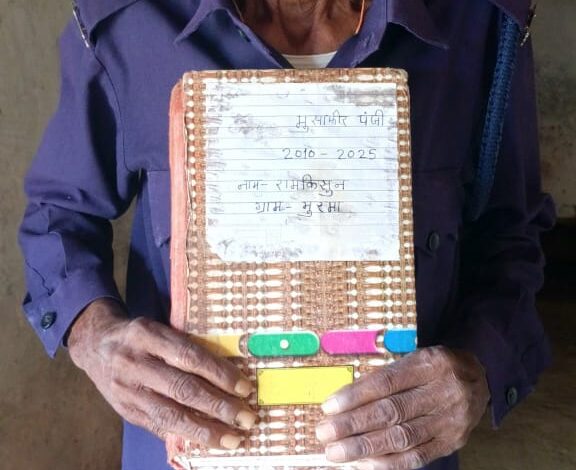 मुसाफीर पंजी
2010 - 2025
नाम- रामकिसुन
ग्राम- मुरमा